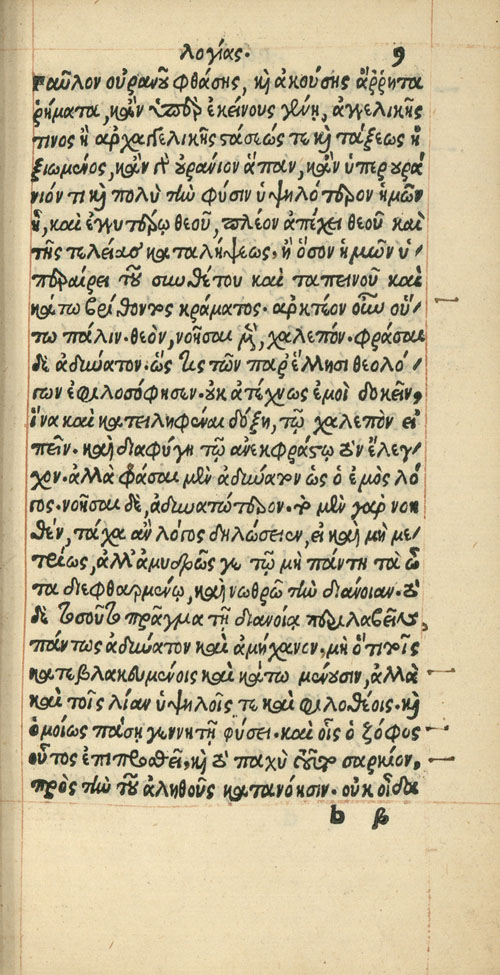 λογίας. 9
Παῦλον οὐρανοῦ φθάσῃς, καὶ ἀκούσῃς ἄῤῥητα
ῥήματα, κἂν ὑπὲρ ἐκείνους γένῃ, ἀγγελικῆς
τινος ἢ ἀρχαγγελικῆς στάσεώς τε καὶ τάξεως ἠ
ξιωμένος, κἂν γὰρ οὐράνιον ἅπαν, κἂν ὑπερουρά
νιόν τι καὶ πολὺ τὴν φύσιν ὑψηλότερον ἡμῶν
ᾖ, καὶ ἐγγυτέρω θεοῦ, πλέον ἀπέχει θεοῦ καὶ
τῆς τελείας καταλήψεως, ἢ ὅσον ἡμῶν ὑ-
περαίρει τοῦ συνθέτου καὶ ταπεινοῦ καὶ
κάτω βρίθοντος κράματος. ἀρκτέον οὖν οὕ-
τω πάλιν. θεὸν, νοῆσαι μὲν, χαλεπόν. φράσαι
δὲ ἀδύνατον. ὥς τις τῶν παρ' ἕλλησι θεολό-
γων ἐφιλοσόφησεν. οὐκ ἀτέχνως ἐμοὶ δοκεῖν,
ἵνα καὶ κατειληφέναι δόξῃ, τῷ χαλεπὸν εἰ
πεῖν. καὶ διαφύγῃ τῷ ἀνεκφράστῳ τὸν ἔλεγ-
χον. ἀλλὰ φράσαι μὲν ἀδύνατον ὡς ὁ ἐμὸς λό
γος. νοῆσαι δὲ, ἀδυνατώτερον. τὸ μὲν γὰρ νοη
θὲν, τάχα ἂν λόγος δηλώσειεν, εἰ καὶ μὴ με-
τρίως, ἀλλ' ἀμυδρῶς γε τῷ μὴ πάντη τὰ ὦ
τα διεφθαρμένῳ, καὶ νωθρῷ τὴν διάνοιαν. τὸ
δὲ τοσοῦτο πρᾶγμα τῇ διανοίᾳ περιλαβεῖν,
πάντως ἀδύνατον καὶ ἀμήχανον, μὴ ὅτι τοῖς
κατεβλακευμένοις καὶ κάτω μένουσιν, ἀλλὰ
καὶ τοῖς λίαν ὑψηλοῖς τε καὶ φιλοθέοις. καὶ
ὁμοίως πάσῃ γεννητῇ φύσει. καὶ οἷς ὁ ζόφος
οὗτος ἐπιπροσθεῖ, καὶ τὸ παχὺ τοῦτο σαρκίον,
πρὸς τὴν τοῦ ἀληθοῦς κατανόησιν. οὐκ οἶδα
b β